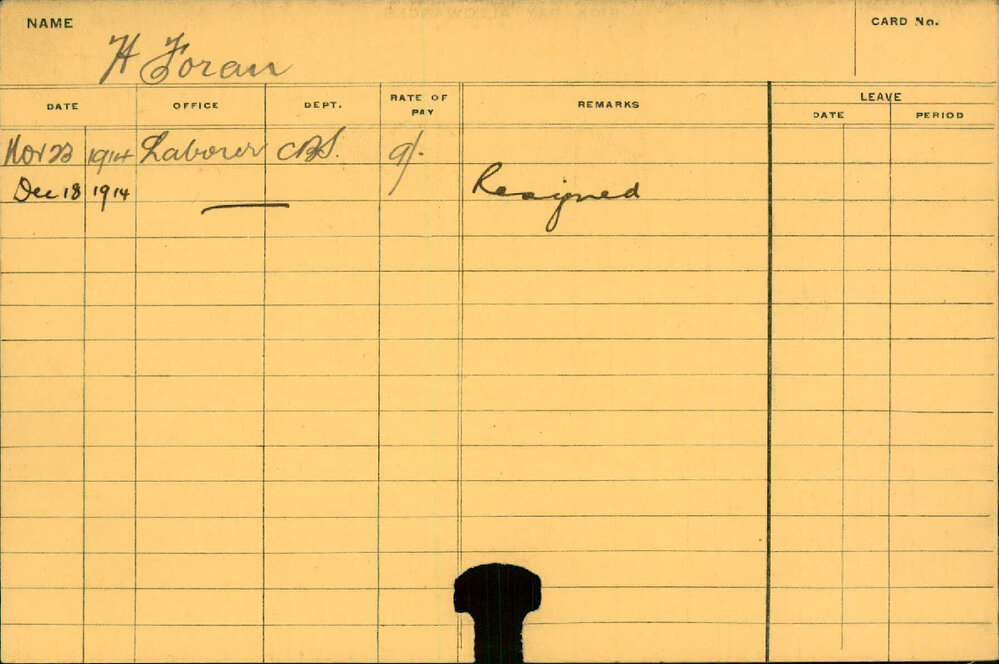 NAME
CARD No.
H Foran
DATE OFFICE DEPT. RATE OF PAY REMARKS LEAVE
DATE PERIOD
Nov 23 1914 Laborer CBS. 9/.
Dec 18 1914 Resigned